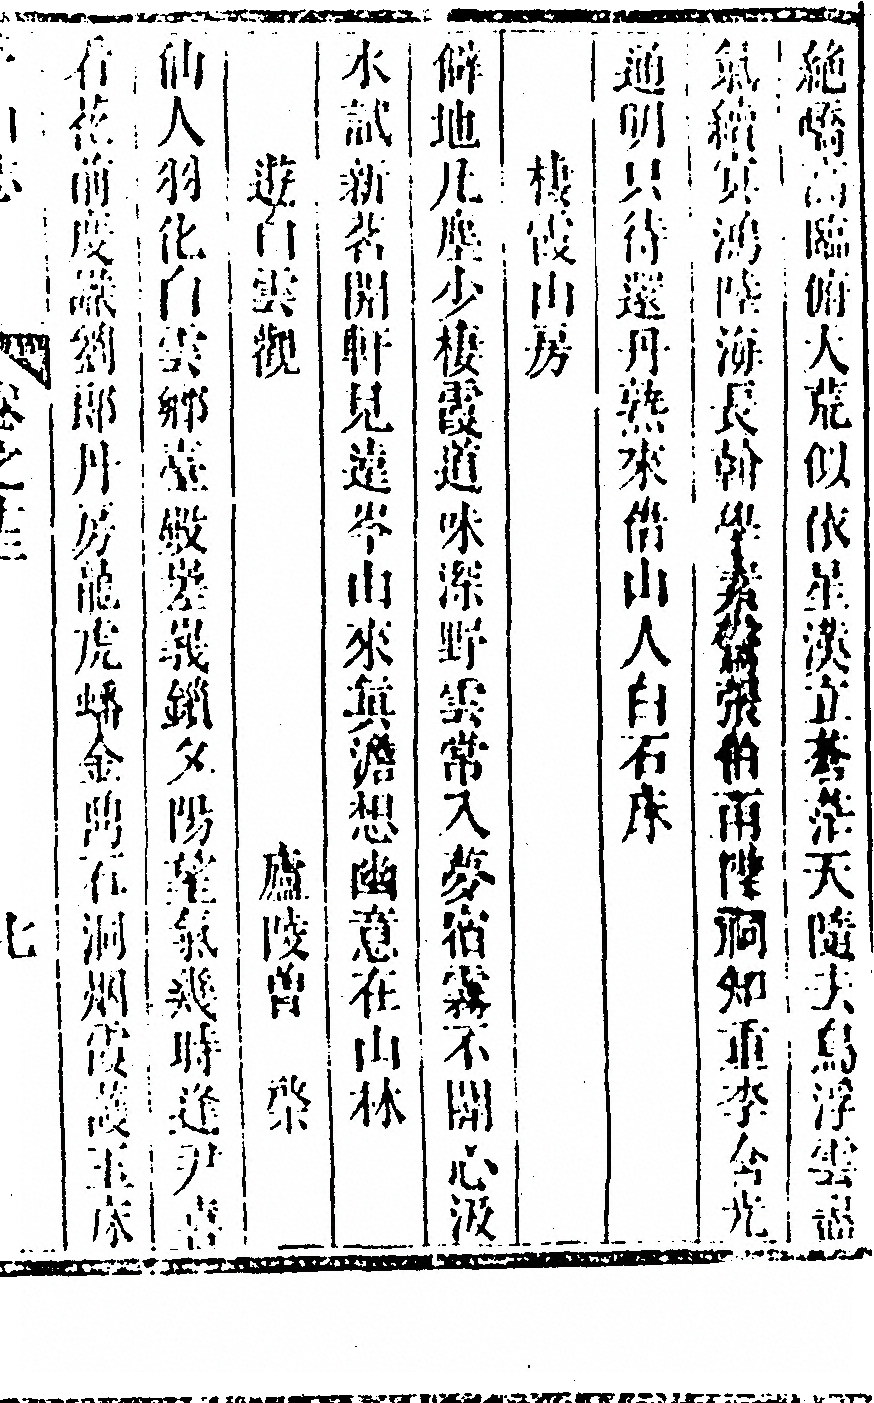 絶嶠高臨俯大荒似依星漢立蒼茫天隨去鳥浮雲盡
氣積寅鴻陸海長幹坐張伯雨陛洞知重李含光
通明只待還丹熟來借山人白石床
棲霞山房
僻地凡塵少棲霞道味深野雲常入夢宿霧不開心汲
水試新茗開軒見遠岑由來眞澹想幽意在山林
遊白雲觀
廬陵曽 棨
仙人羽化白雲鄉臺殿嵳峩鎖夕陽瑾氣幾時逢尹喜
看花前度説劉郎丹房龍虎蟠金鼎石洞烟霞護玉床
卷之十三
七